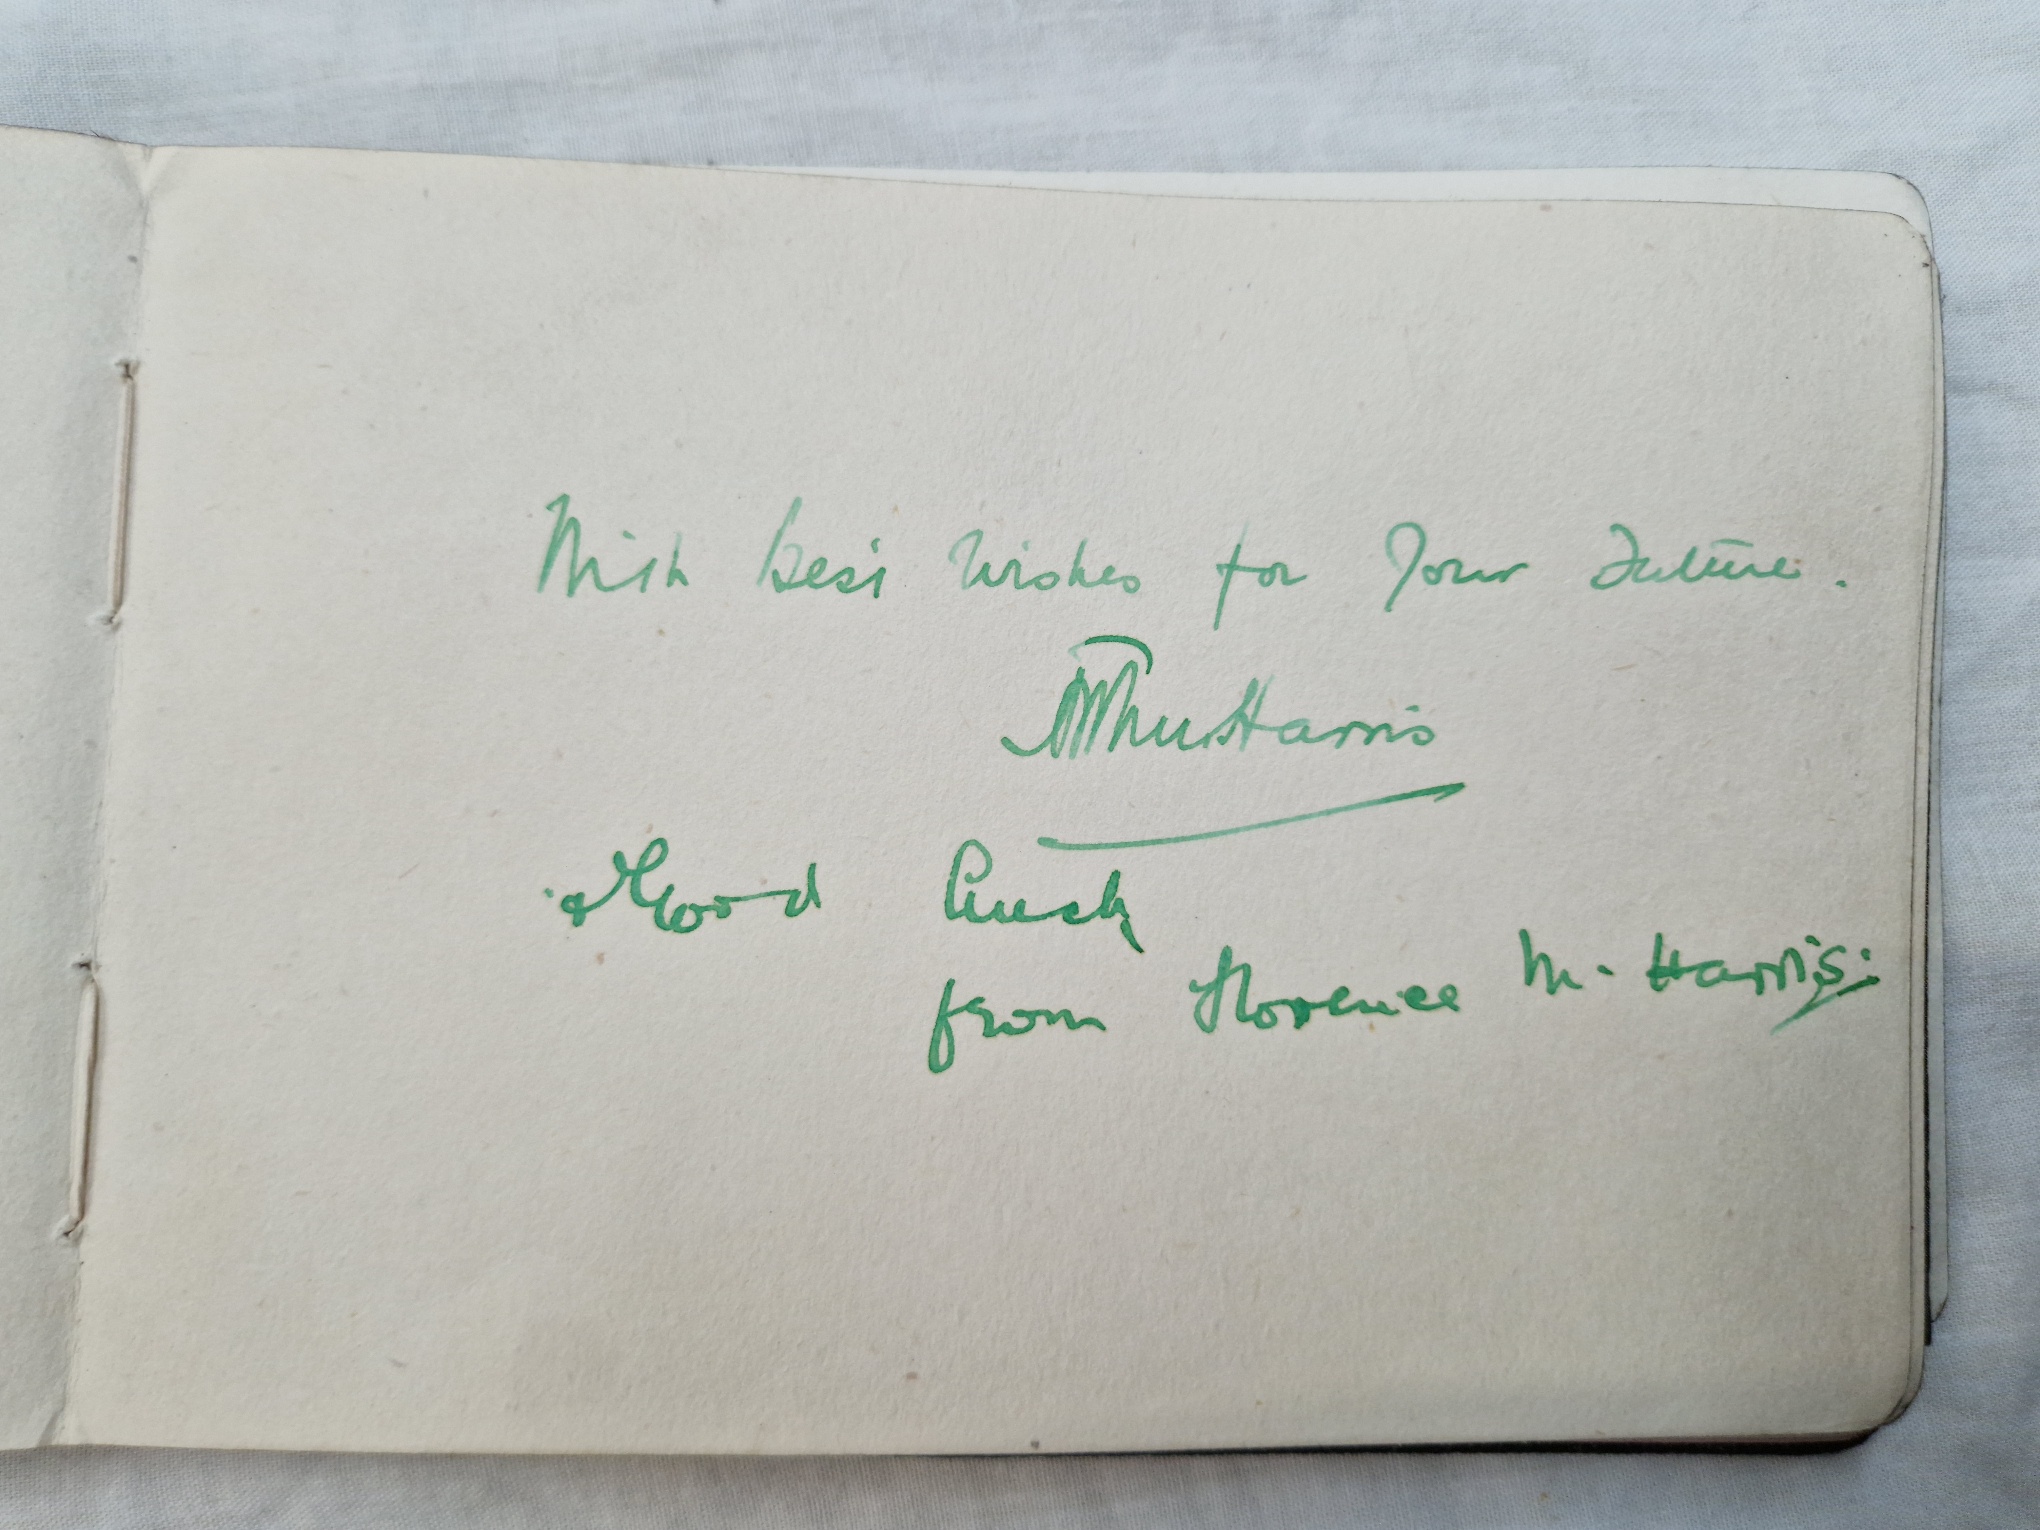 With best wishes for Your Future.
Arthur Harris
& Good Luck
from Florence M. Harris.